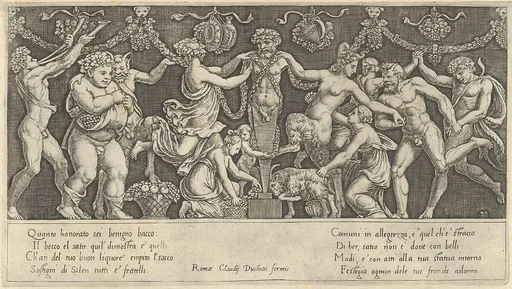 Quanto honorato sei benigno bacco
Il becco el satir quil' dimostra e quelli
Ch'an del tuo buon liquore' empito l'sacco
Sostegni di Silen tutti e' fratelli
Romæ Claudij Duchetti formis
Comuni in allegrezza, e' quel ch'è stracco
Di ber, satio non è doue con belli
Modi, e' con atti alla tua statua intorno
Festegia ognun delle tue frondi adorno